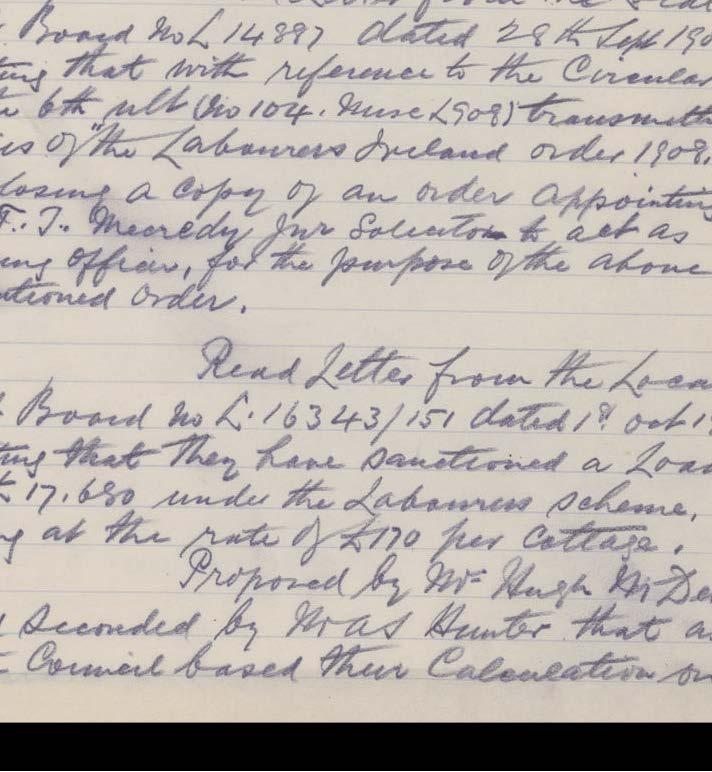 Board No L 14887 dated 28th Sept 190
ting that with reference to the Circular
6th ult (No 104. Misc 1908) transmitt
is of "the Labourers Ireland order 1908.
losing a copy of an order appointing
F. J. Mecredy Jnr Solicitor to act as
ing officer, for the purpose of the above
ntioned order.
Read Letter from the Loca
Board No L. 16343/151 dated 1st Oct 19
ting that they have sanctioned a Loan
£17.680 under the Labourers scheme,
g at the rate of £170 per cottage.
Proposed by Mr Hugh McDe
Seconded by Mr A S Hunter that a
Council based their Calculation on